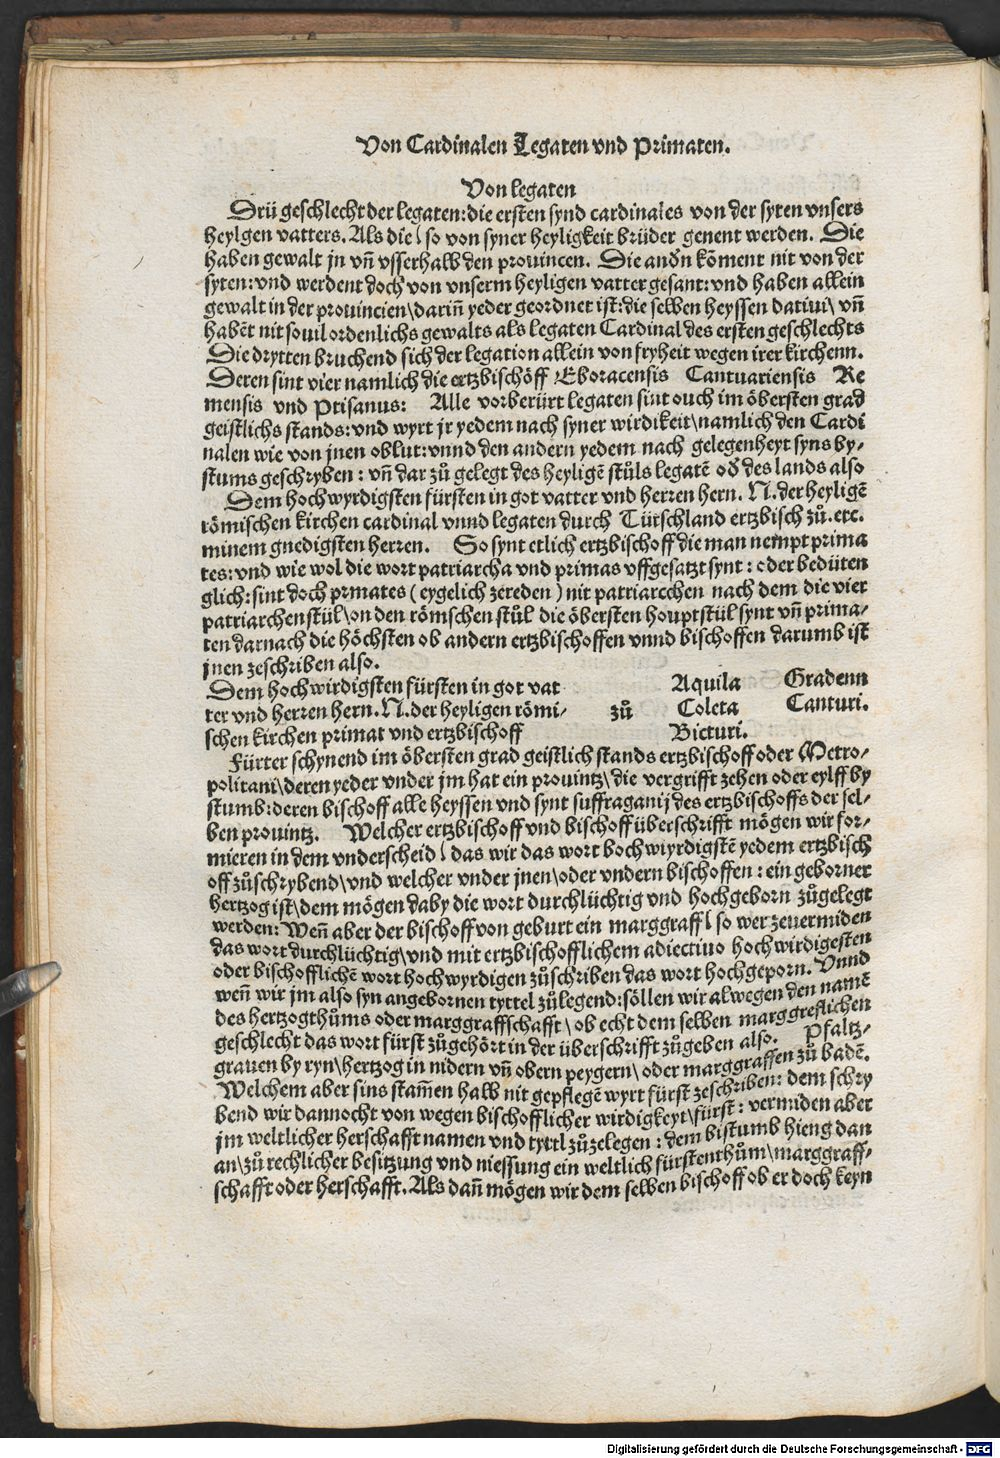 Von Cardinalen Legaten vnd Primaten.
Von legaten
Drü geschlecht der legaten: die ersten synd cardinales von der syten vnsers
heylgen vatters. Als die ( so von syner heyligkeit brüder genent werden. Die
haben gewalt jn vñ vsserhalb den prouincen. Die andn̄ kōment nit von der
syten: vnd werdent doch von vnserm heyligen vatter gesant: vnd haben allein
gewalt in der prouincien\ darin̄ yeder geordnet ist: die selben heyssen datiui\ vñ
habēt nit souil ordenlichs gewalts als legaten Cardinal des ersten geschlechts
Die drytten bruchend sich der legation allein von fryheit wegen irer kirchenn.
Deren sint vier namlich die ertzbischöff Eboracensis Cantuariensis Re
mensis vnd Ptisanus: Alle vorberürt legaten sint ouch im öbersten grad
geistlichs stands: vnd wyrt jr yedem nach syner wirdikeit\ namlich den Cardi
nalen wie von jnen oblut: vnnd den andern yedem nach gelegenheyt syns by-
stums geschryben: vñ dar zů gelegt des heyligē stůls legatē od̄ des lands also
Dem hochwyrdigsten fürsten in got vatter vnd herren hern. N. der heyligē
römischen kirchen cardinal vnnd legaten durch Tütschland ertzbisch zů. etc.
minem gnedigsten herren. So synt etlich ertzbischoff die man nempt prima
tes: vnd wie wol die wort patriarcha vnd primas vffgesatzt synt: eder bedüten
glich: sint doch prmates ( eygelich zereden ) nit patriarcchen nach dem die vier
patriarchen stül\ on den römschen stůl die öbersten houptstül synt vñ prima-
ten darnach die höchsten ob andern ertzbischoffen vnnd bischoffen darumb ist
jnen zeschriben also.
Dem hochwirdigsten fürsten in got vat Aquila Gradenn
ter vnd herren hern. N. der heyligen römi- zů Coleta Canturi.
schen kirchen primat vnd ertzbischoff Bicturi.
Fürter schynend im öbersten grad geistlich stands ertzbischoff oder Metro-
politani\ deren yeder vnder jm hat ein prouintz\ die vergrifft zehen oder eylff by
stumb: deren bischoff alle heyssen vnd synt suffraganij des ertzbischoffs der sel-
ben prouintz. Welcher ertzbischoff vnd bischoff überschrifft mögen wir for-
mieren in dem vnderscheid ( das wir das wort hochwiyrdigstē yedem ertzbisch
off zůschrybend\ vnd welcher vnder jnen\ oder vndern bischoffen: ein geborner
hertzog ist\ dem mögen daby die wort durchlüchtig vnd hochgeborn zůgelegt
werden: Wen̄ aber der bischoff von geburt ein marggraff ( so wer zeuermiden
das wort durchlüchtig\ vnd mit ertzbischofflichem adiectiuo hochwirdigesten
oder bischofflichē wort hochwyrdigen zůschriben das wort hochgeporn. Vnnd
wen̄ wir jm also syn angebornen tyttel zůlegend: söllen wir alwegen den namē
des hertzogthůms oder marggraffschafft\ ob echt dem selben marggreflichen
geschlecht das wort fürst zůgehört in der überschrifft zůgeben also. Pfaltz-
grauen by ryn\ hertzog in nidern vñ obern peygern\ oder marggraffen zů badē.
Welchem aber sins stam̄en halb nit gepflegē wyrt fürst zeschriben: dem schry
bend wir dannocht von wegen bischofflicher wirdigkeyt\ fürst: vermiden aber
jm weltlicher herschafft namen vnd tyttl zůzelegen: dem bistumb hieng dan
an\ zů rechlicher besitzung vnd niessung ein weltlich fürstenthům\ marggraff-
schafft oder herschafft. Als dan̄ mögen wir dem selben bischoff ob er doch keyn
Digitalisierung gefördert durch die Deutsche Forschungsgemeinschaft - DFG